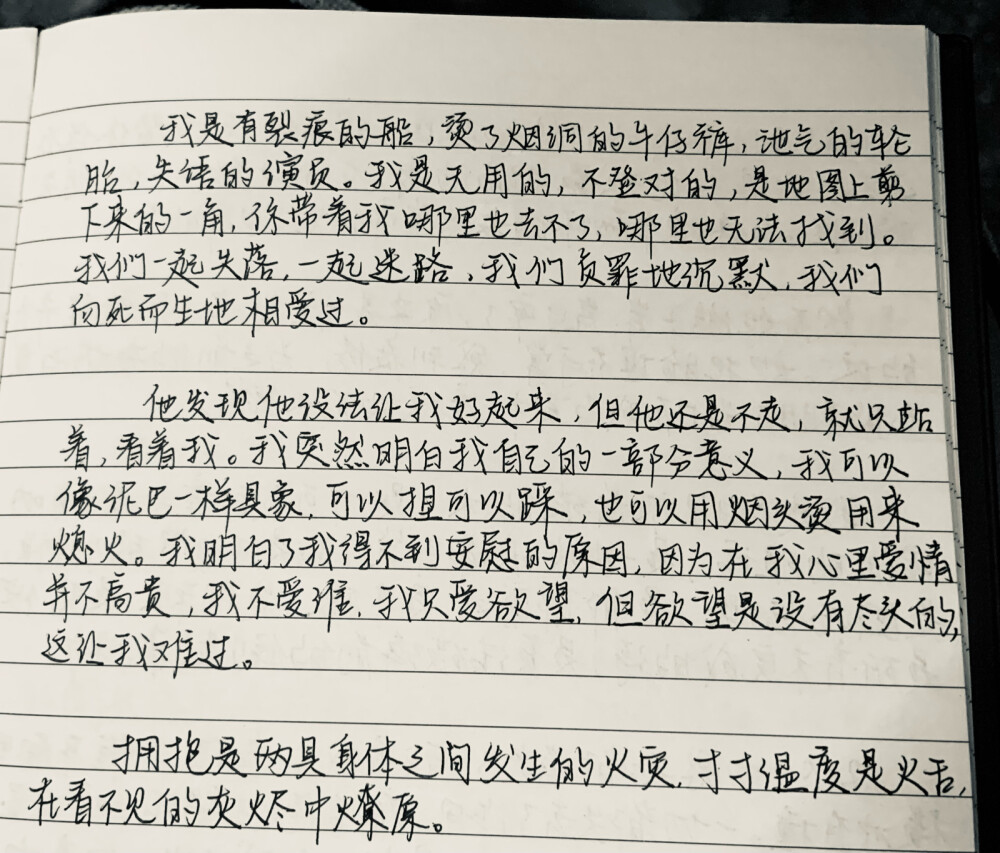 我是有裂痕的船，烫了烟洞的牛仔裤，泄气的轮
胎，失语的演员。我是无用的，不登对的，是地图上剪
下来的一角，你带着我哪里也去不了，哪里也无法找到。
我们一起失落，一起迷路，我们负罪地沉默，我们
向死而生地相爱过。
他发现他没法让我好起来，但他还是不走，就只站
着，看着我。我突然明白我自己的一部分意义，我可以
像泥巴一样具象，可以捏可以踩，也可以用烟头烫用来
熄火。我明白了我得不到安慰的原因，因为在我心里爱情
并不高贵，我不爱谁，我只爱欲望，但欲望是没有尽头的，
这让我难过。
拥抱是两具身体之间发生的火灾，寸寸温度是火舌，
在看不见的灰烬中燎原。